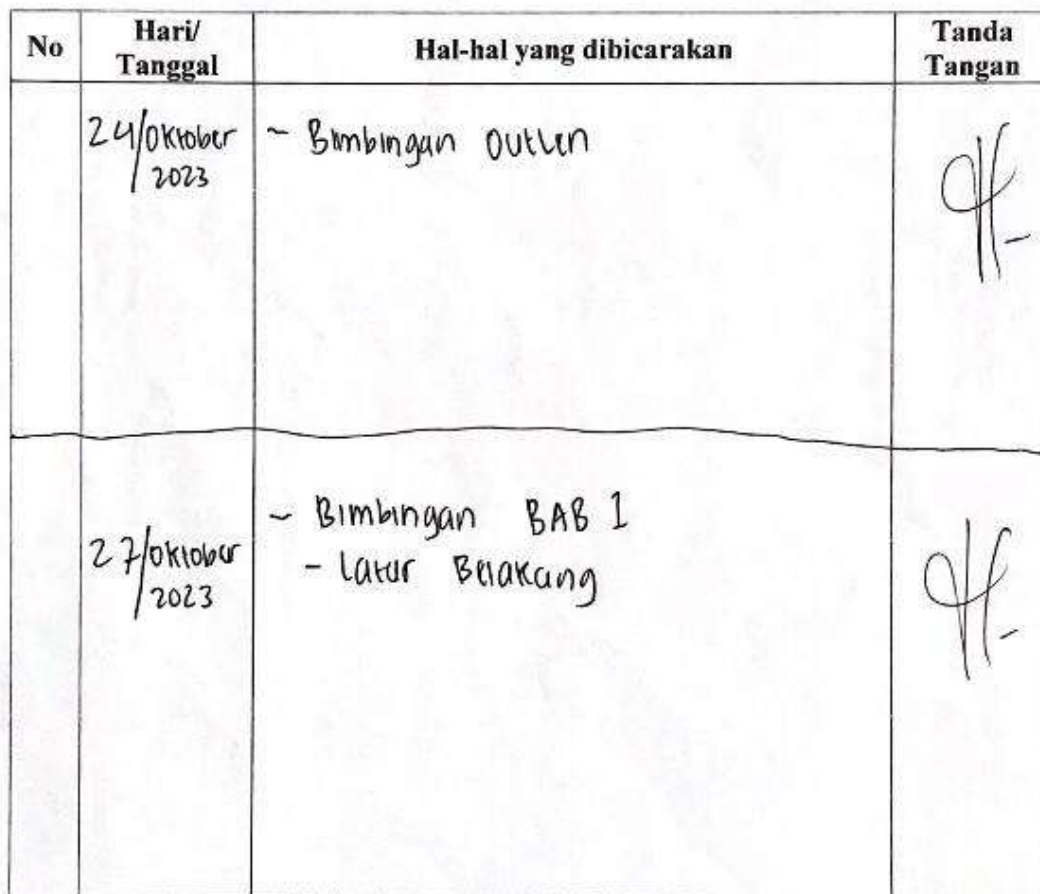 No
Hari/
Tanggal
Hal-hal yang dibicarakan
Tanda
Tangan
24/Oktober
2023
~ Bimbingan Outlen
27/Oktober
2023
~ Bimbingan BAB I
- Latar Belakang